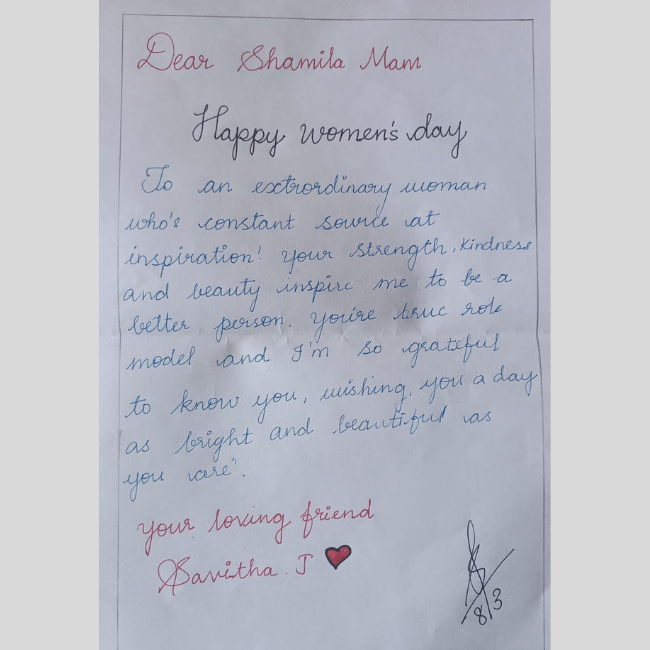 Dear Shamila Mam
Happy women's day
To an extrordinary woman
who's constant source at
inspiration! your strength, kindness
and beauty inspire me to be a
better person. you're true role
model and I'm so grateful
to know you, wishing, you a day
as bright and beautiful as
you are".
your loving friend
Savitha J
8/3